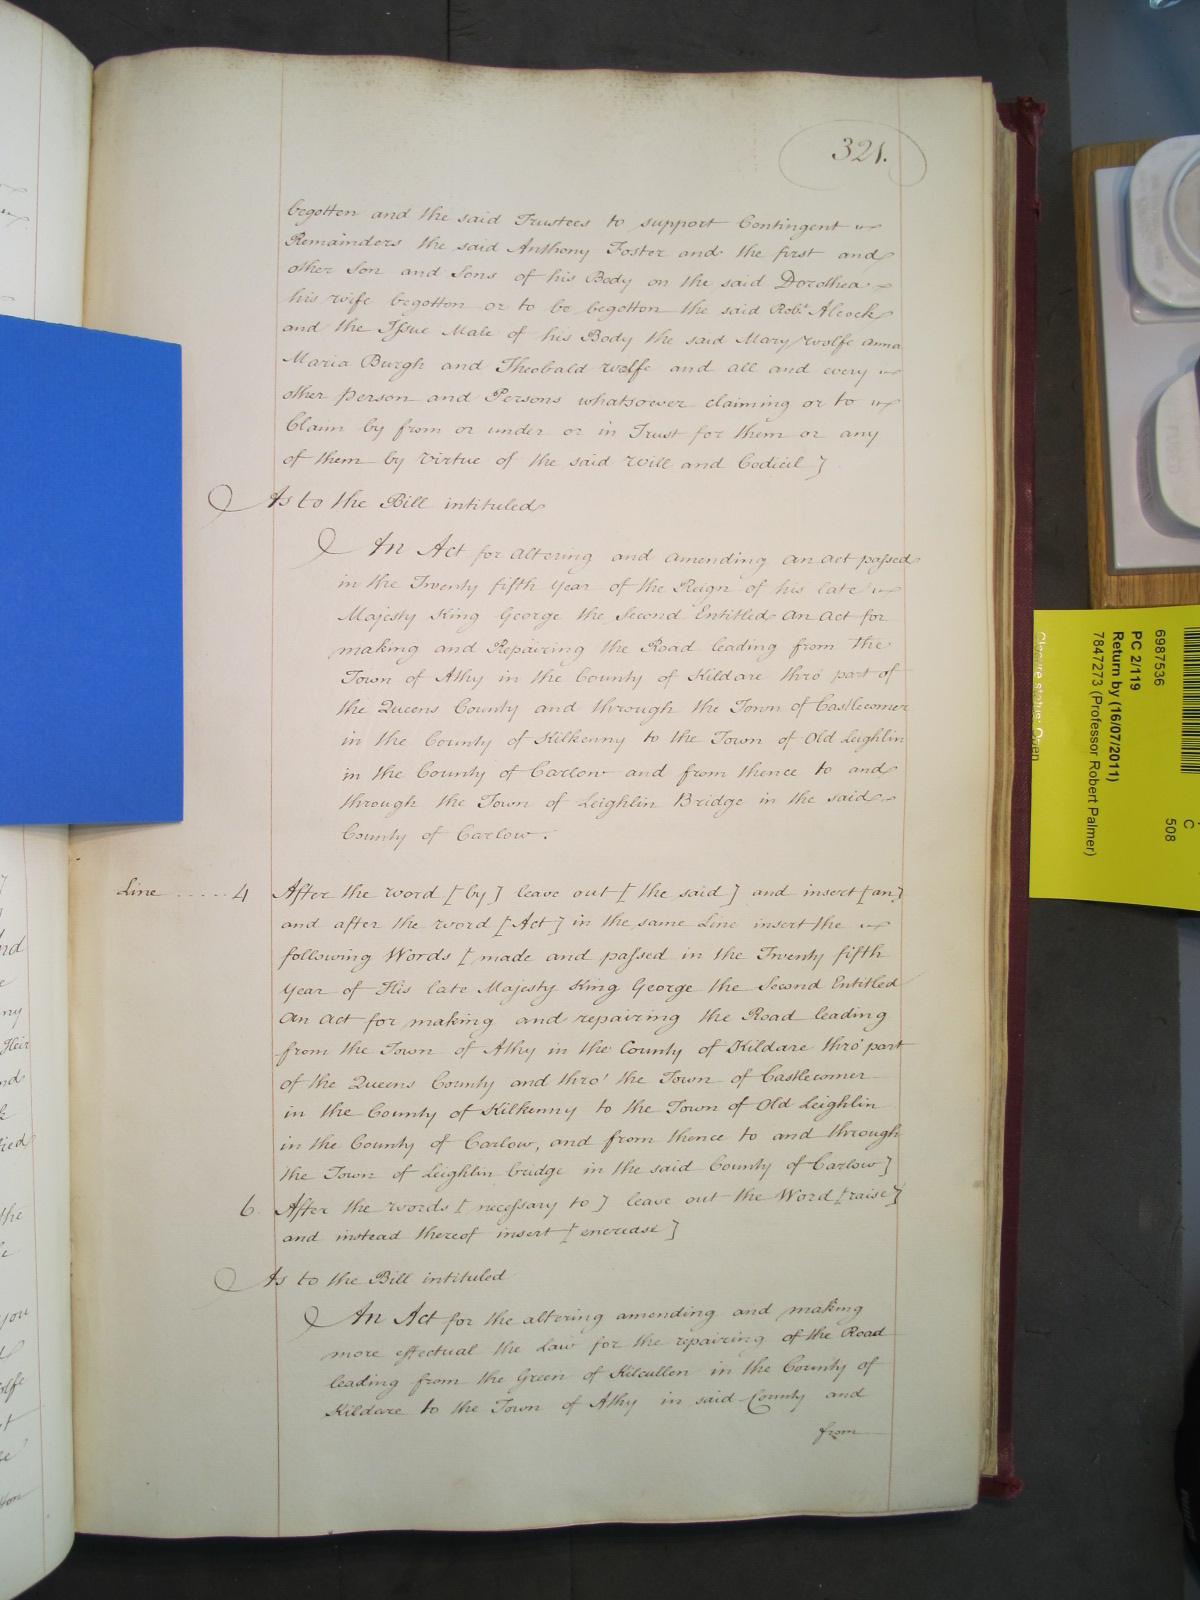 321.
begotten and the said Trustees to support Contingent
Remainders the said Anthony Foster and the first and
other Son and Sons of his Body on the said Dorothea
his wife begotten or to be begotten the said Robt. Alcock
and the Issue Male of his Body the said Mary Wolfe anna
Maria Burgh and Theobald Wolfe and all and every
other Person and Persons whatsoever claiming or to
Claim by from or under or in Trust for them or any
of them by Virtue of the said Will and Codicil]
As to the Bill intituled
An Act for altering and amending an act passed
in the Twenty fifth Year of the Reign of his late
Majesty King George the Second Entitled an Act for
making and Repairing the Road leading from the
Town of Athy in the County of Kildare thro' part of
the Queens County and through the Town of Castlecomer
in the County of Kilkenny to the Town of Old Leighlin
in the County of Carlow and from thence to and
through the Town of Leighlin Bridge in the said
County of Carlow.
Line ..... 4 After the word [by] leave out [the said] and insert [an]
and after the word [Act] in the same Line insert the
following Words [made and passed in the Twenty fifth
Year of His late Majesty King George the Second Entitled
an Act for making and repairing the Road leading
from the Town of Athy in the County of Kildare thro' part
of the Queens County and thro' the Town of Castlecomer
in the County of Kilkenny to the Town of Old Leighlin
in the County of Carlow, and from thence to and through
the Town of Leighlin bridge in the said County of Carlow]
6. After the words [necessary to] leave out the Word [raise]
and instead thereof insert [encrease]
As to the Bill intituled
An Act for the altering amending and making
more effectual the Law for the repairing of the Road
leading from the Green of Kilcullen in the County of
Kildare to the Town of Athy in said County and
from
6987536
PC 2/119
Return by (16/07/2011)
7847273 (Professor Robert Palmer)
Closure status: Open
C
508